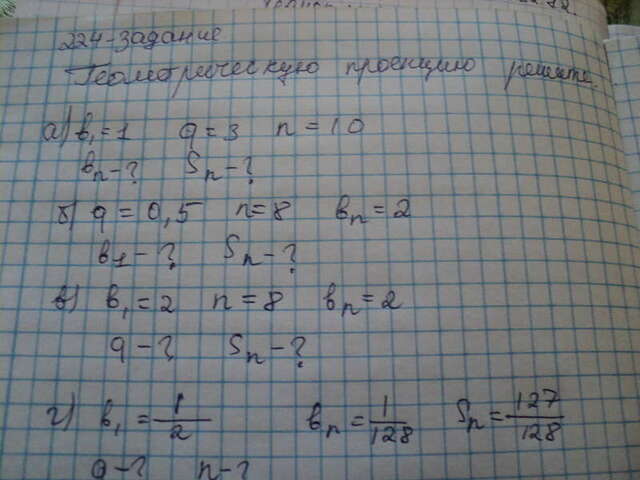 224-задание
Геометрическую проекцию решить.
а) b₁=1 q=3 n=10
bₙ-? Sₙ-?
б) q=0,5 n=8 bₙ=2
b1-? Sₙ-?
в) b₁=2 n=8 bₙ=2
q-? Sₙ-?
г) b₁=1/2 bₙ=1/128 Sₙ=127/128
q-? n-?